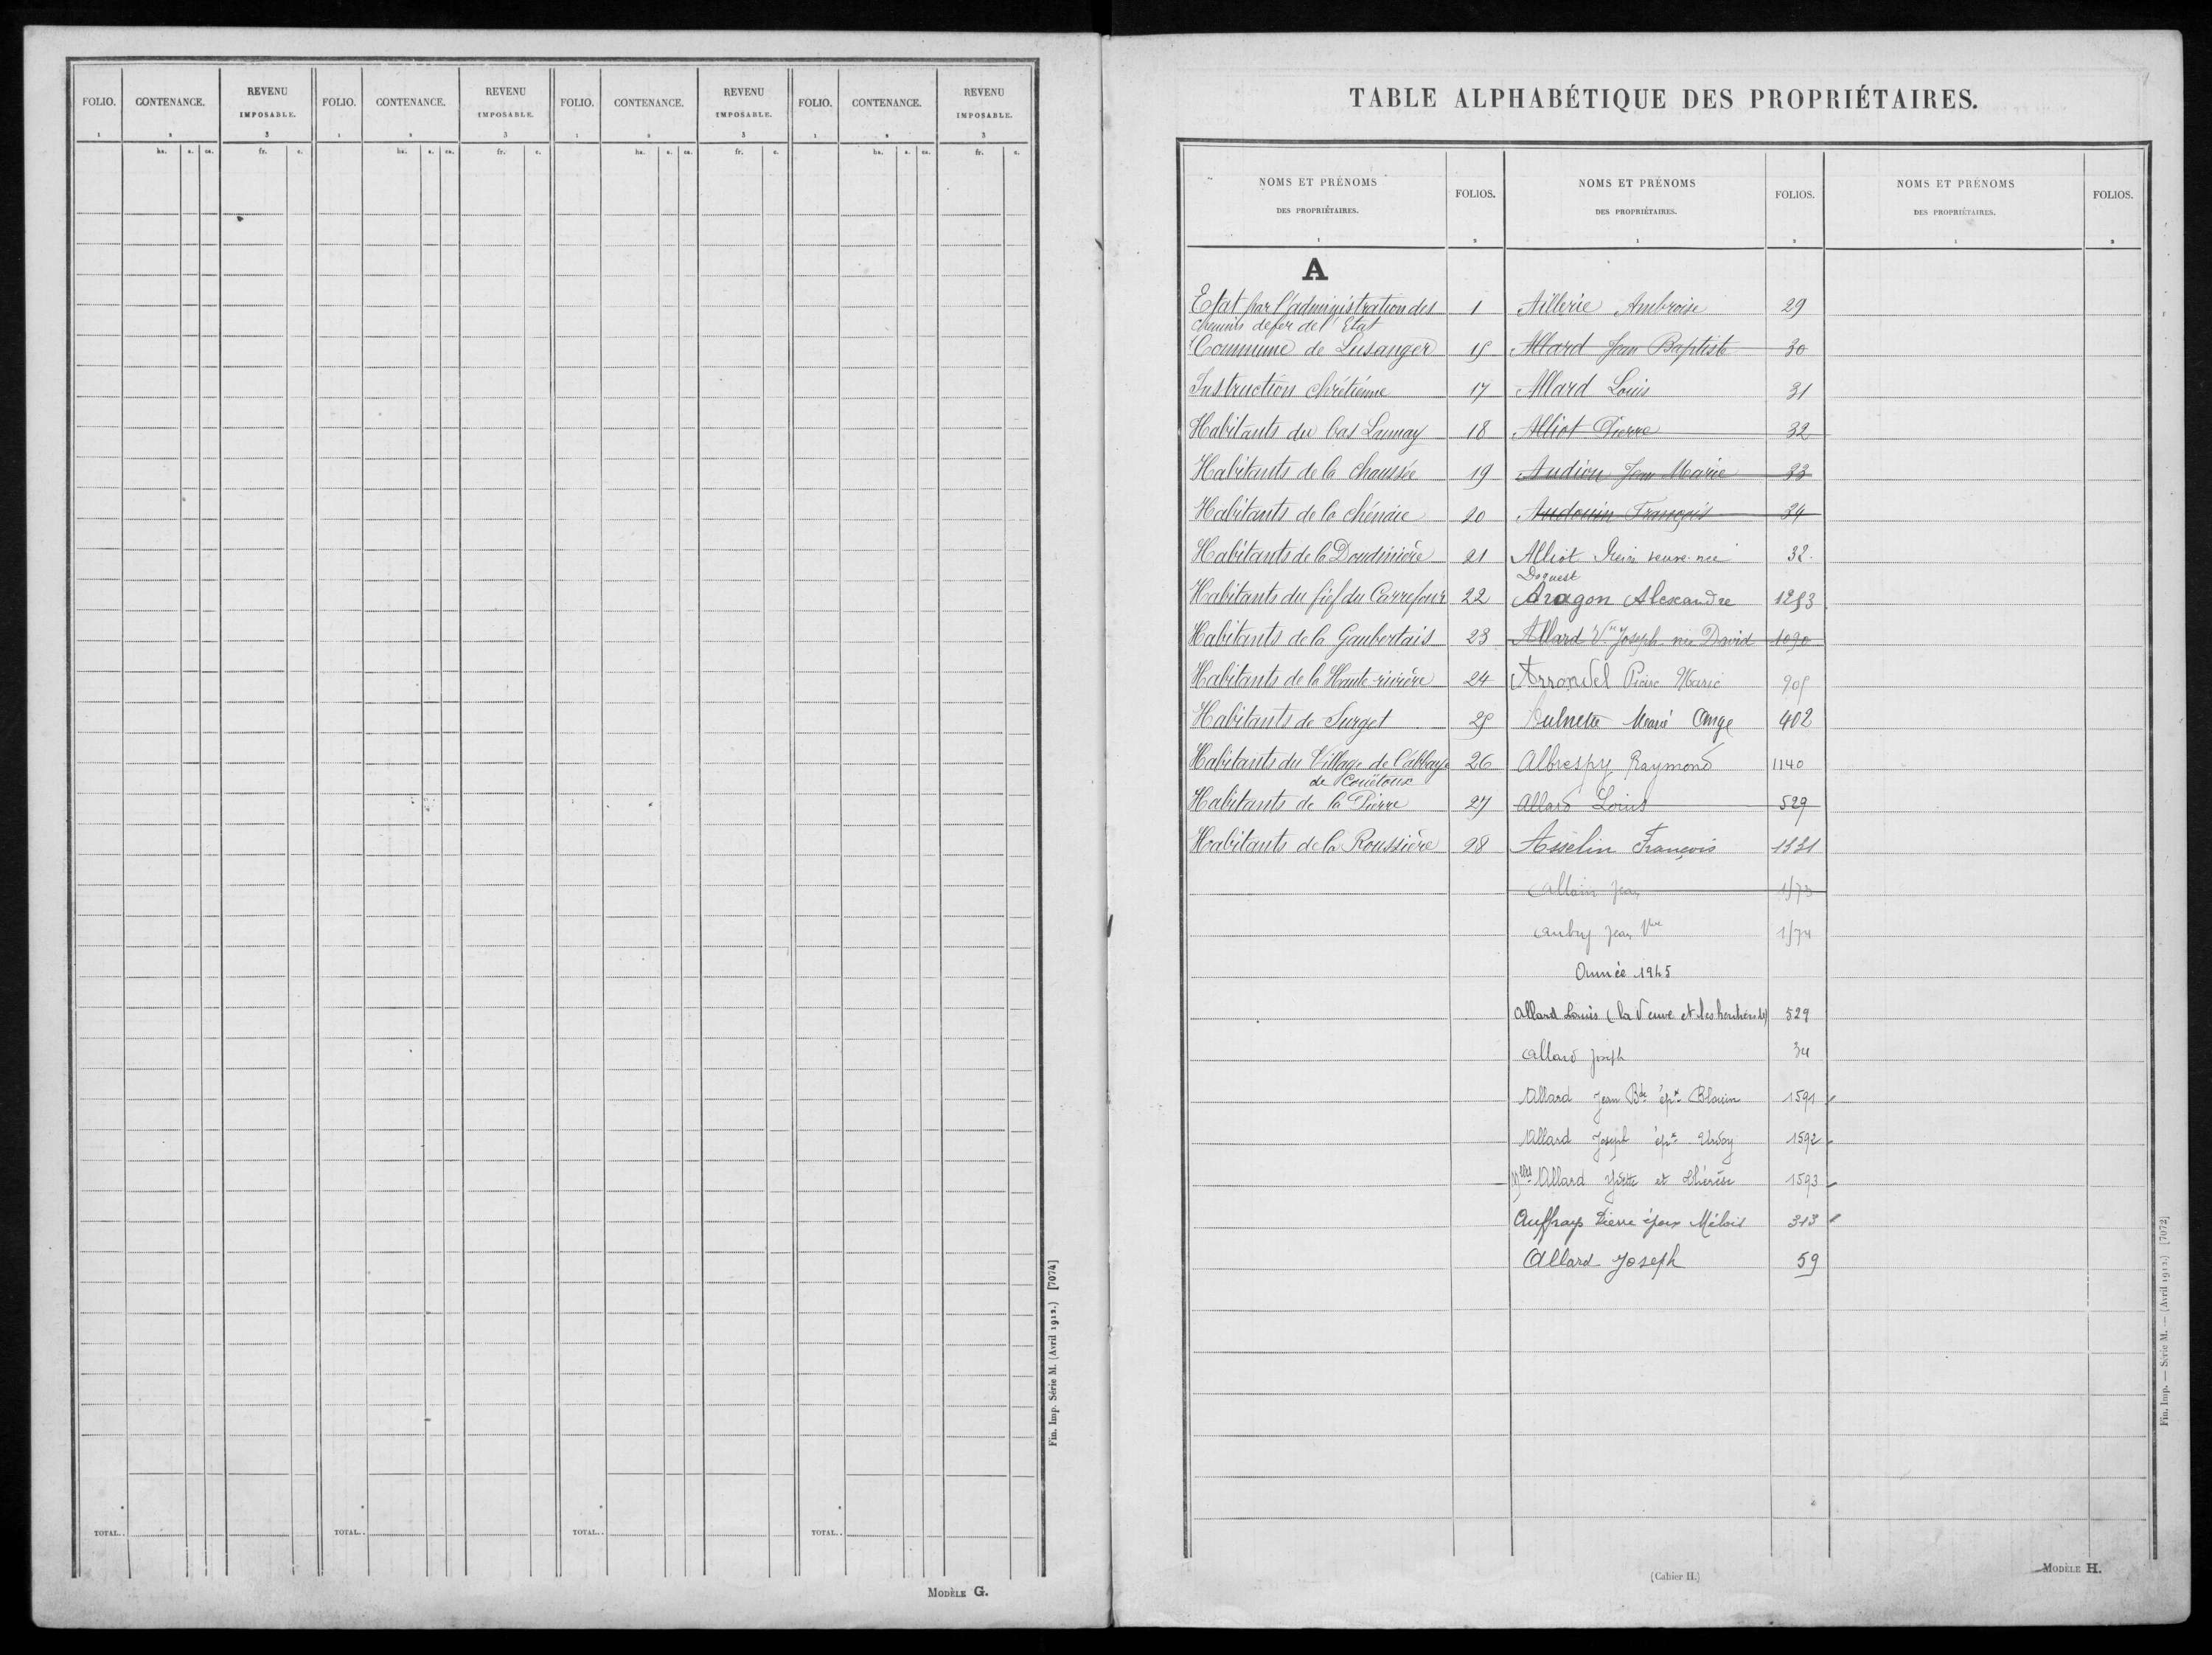 FOLIO. CONTENANCE. REVENU IMPOSABLE. FOLIO. CONTENANCE. REVENU IMPOSABLE. FOLIO. CONTENANCE. REVENU IMPOSABLE. FOLIO. CONTENANCE. REVENU IMPOSABLE.
1 2 3 1 2 3 1 2 3 1 2 3
ha. a. ca. fr. c. ha. a. ca. fr. c. ha. a. ca. fr. c. ha. a. ca. fr. c.
TOTAL.. TOTAL.. TOTAL.. TOTAL..
Fin. Imp. Série M. (Avril 1912.) [7074]
MODÈLE G.
TABLE ALPHABÉTIQUE DES PROPRIÉTAIRES.
NOMS ET PRÉNOMS DES PROPRIÉTAIRES. FOLIOS. NOMS ET PRÉNOMS DES PROPRIÉTAIRES. FOLIOS. NOMS ET PRÉNOMS DES PROPRIÉTAIRES. FOLIOS.
1 2 1 2 1 2
A
Etat par l'administration des 1
chemins de fer de l'Etat
Commune de Lusanger 15
Instruction chrétienne 17
Habitants du bas Launay 18
Habitants de la chaussée 19
Habitants de la chénaie 20
Habitants de la Doudinière 21
Habitants du fief du Carrefour 22
Habitants de la Gaubertais 23
Habitants de la Haute-rivière 24
Habitants de Surget 25
Habitants du Village de l'abbaye 26
de Couëtoux
Habitants de la Pierre 27
Habitants de la Roussière 28
Aillerie Ambroise 29
Allard Jean Baptiste 30
Allard Louis 31
Alliot Pierre 32
Audion Jean Marie 33
Audouin François 34
Alliot veuve née 32
Aragon Alexandre 1253
Allard Vve Joseph née David 1090
Arrondel Pierre Marie 905
Aulnette Marie Ange 402
Albrespy Raymond 1140
Allard Louis 529
Asselin François 1131
Allain Jean 1573
Aubry Jean Vve 1574
Année 1945
Allard Louis (la Veuve et les héritiers de) 529
Allard Joseph 34
Allard Jean Bte épx Blouin 1591
Allard Joseph épx 1592
Mlles Allard Yvette et Thérèse 1593
Auffray Pierre époux Mélois 313
Allard Joseph 59
(Cahier II.)
MODÈLE H.
Fin. Imp. — Série M. — (Avril 1912.) [7072]